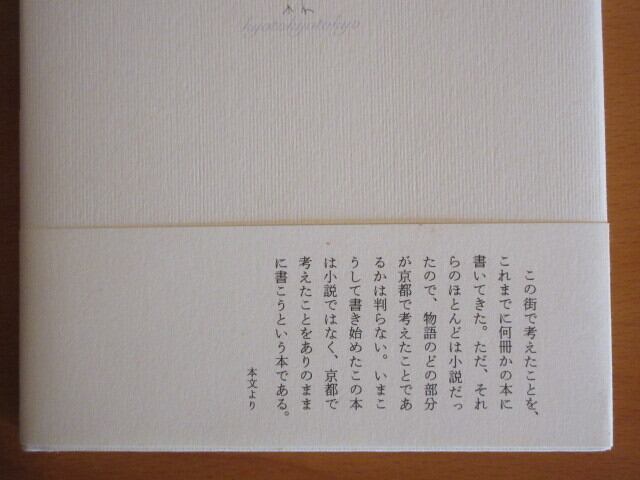 kyotokyotokyo
この街で考えたことを、
これまでに何冊かの本に
書いてきた。ただ、それ
らのほとんどは小説だっ
たので、物語のどの部分
が京都で考えたことであ
るかは判らない。いまこ
うして書き始めたこの本
は小説ではなく、京都で
考えたことをありのまま
に書こうという本である。
本文より